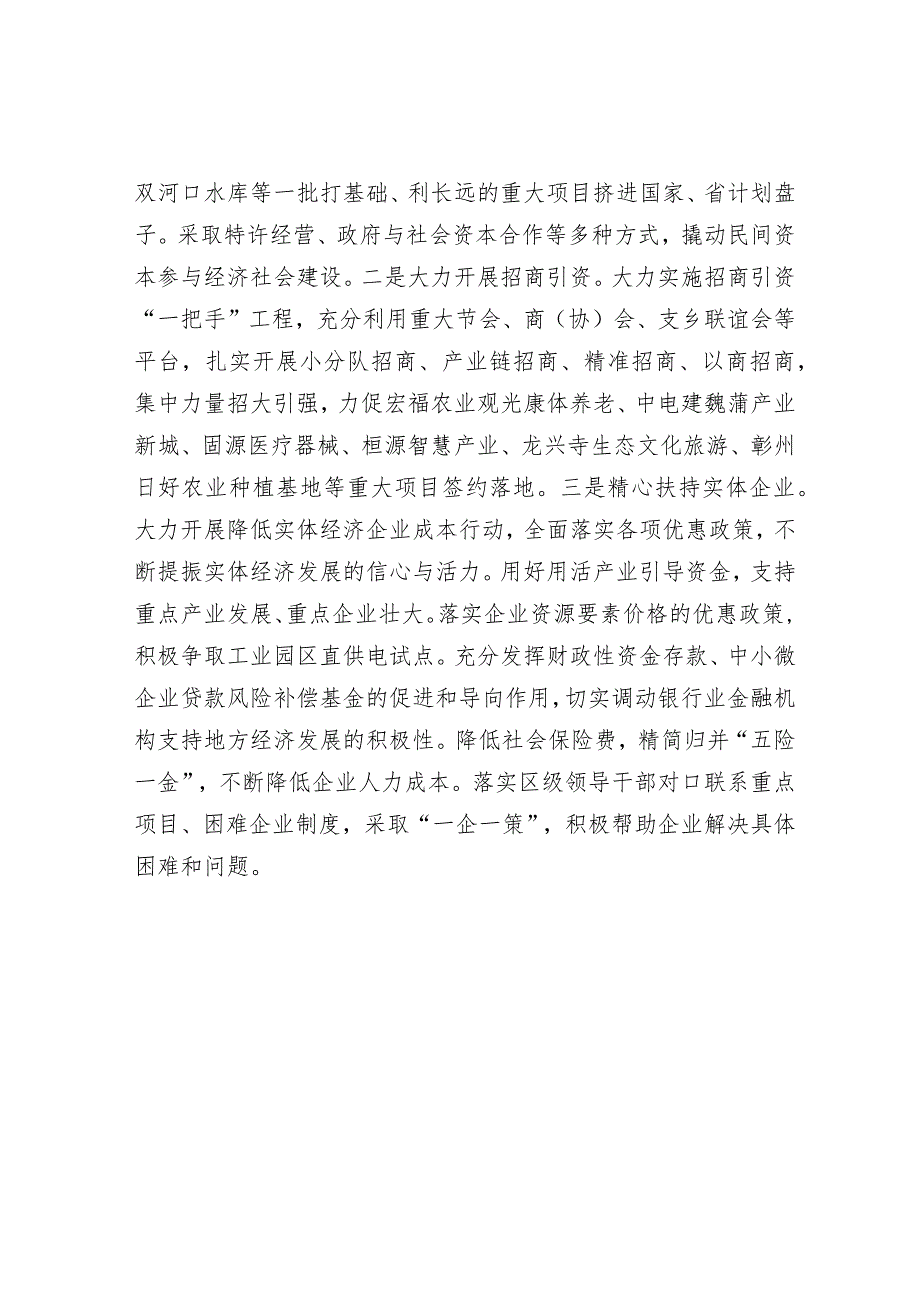 双河口水库等一批打基础、利长远的重大项目挤进国家、省计划盘
子。采取特许经营、政府与社会资本合作等多种方式，撬动民间资
本参与经济社会建设。二是大力开展招商引资。大力实施招商引资
“一把手”工程，充分利用重大节会、商（协）会、支乡联谊会等
平台，扎实开展小分队招商、产业链招商、精准招商、以商招商，
集中力量招大引强，力促宏福农业观光康体养老、中电建魏蒲产业
新城、固源医疗器械、桓源智慧产业、龙兴寺生态文化旅游、彰州
日好农业种植基地等重大项目签约落地。三是精心扶持实体企业。
大力开展降低实体经济企业成本行动，全面落实各项优惠政策，不
断提振实体经济发展的信心与活力。用好用活产业引导资金，支持
重点产业发展、重点企业壮大。落实企业资源要素价格的优惠政策，
积极争取工业园区直供电试点。充分发挥财政性资金存款、中小微
企业贷款风险补偿基金的促进和导向作用，切实调动银行业金融机
构支持地方经济发展的积极性。降低社会保险费，精简归并“五险
一金”，不断降低企业人力成本。落实区级领导干部对口联系重点
项目、困难企业制度，采取“一企一策”，积极帮助企业解决具体
困难和问题。